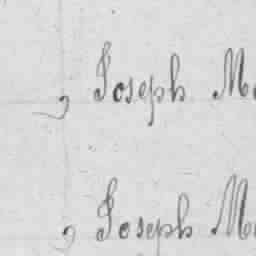 , Joseph M
, Joseph M